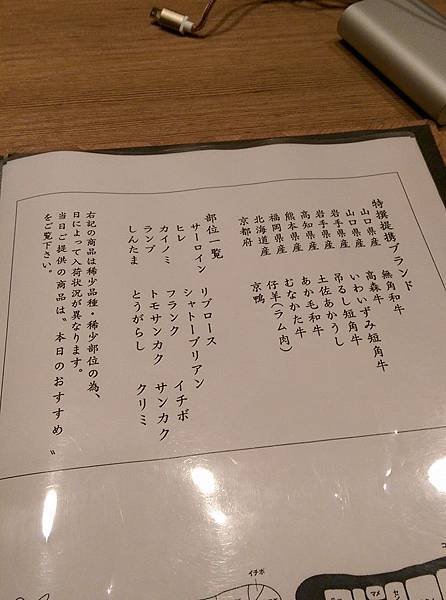 特撰提携ブランド
山口県産 無角和牛
山口県産 高森牛
岩手県産 いわいずみ短角牛
岩手県産 吊るし短角牛
高知県産 土佐あかうし
熊本県産 あか毛和牛
福岡県産 むなかた牛
北海道産 仔羊(ラム肉)
京都府 京鴨
部位一覧
サーロイン リブロース
ヒレ シャトーブリアン
カイノミ フランク イチボ
ランプ トモサンカク サンカク
しんたま とうがらし クリミ
右記の商品は稀少品種・稀少部位の為、
日によって入荷状況が異なります。
当日ご提供の商品は〝本日のおすすめ〟
をご覧下さい。
イチボ
マメ